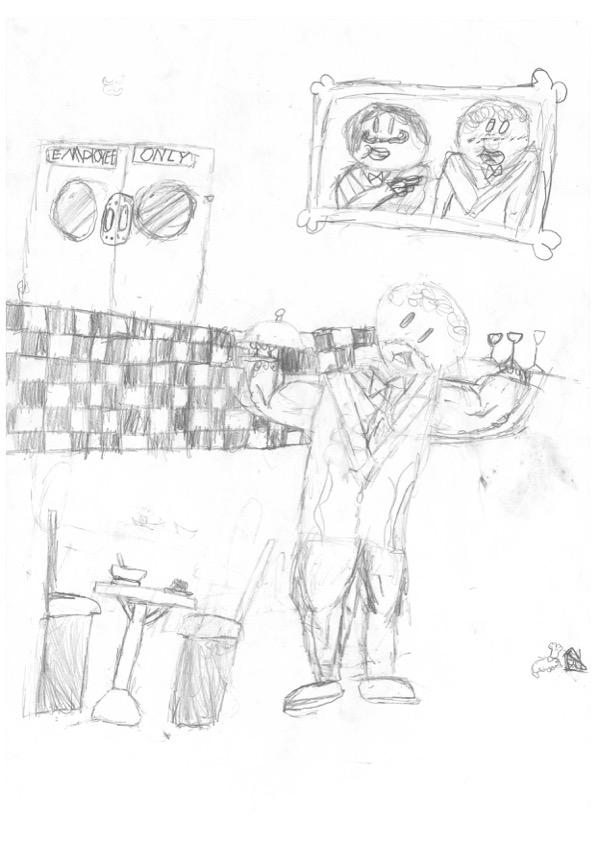 EMPLOYEE ONLY